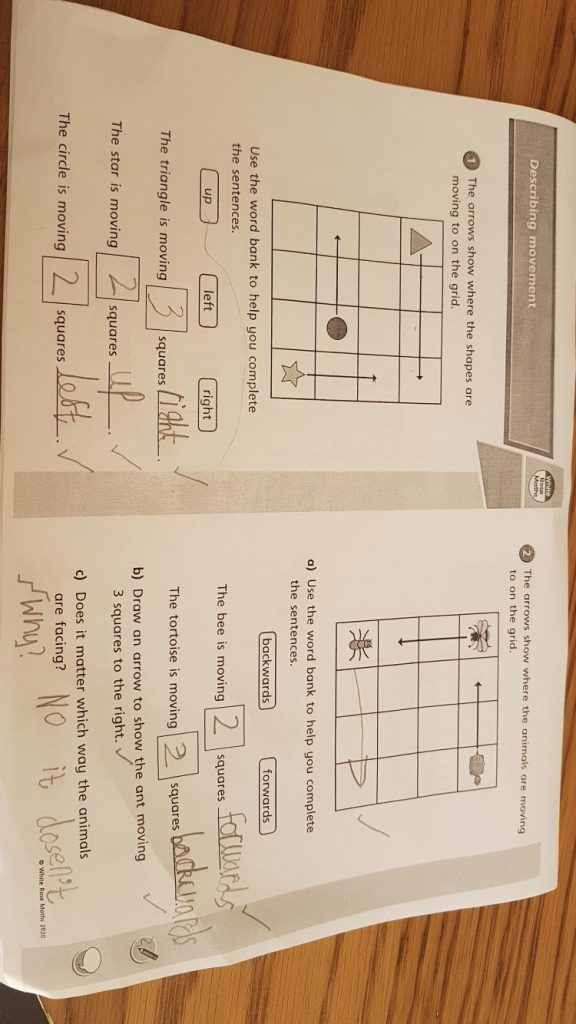 Describing movement
White
Rose
Maths
1 The arrows show where the shapes are
moving to on the grid.
Use the word bank to help you complete
the sentences.
up left right
The triangle is moving 3 squares right.
The star is moving 2 squares up.
The circle is moving 2 squares left.
2 The arrows show where the animals are moving
to on the grid.
a) Use the word bank to help you complete
the sentences.
backwards forwards
The bee is moving 2 squares forwards
The tortoise is moving 2 squares backwards
b) Draw an arrow to show the ant moving
3 squares to the right.
c) Does it matter which way the animals
are facing? No it dosen't
Why?
© White Rose Maths 2020